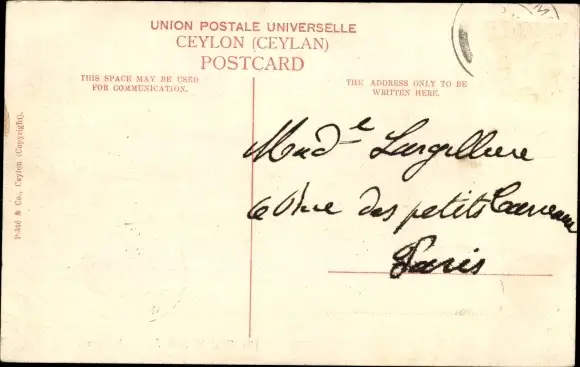 UNION POSTALE UNIVERSELLE
CEYLON (CEYLAN)
POSTCARD
THIS SPACE MAY BE USED
FOR COMMUNICATION.
THE ADDRESS ONLY TO BE
WRITTEN HERE.
Plâté & Co., Ceylon (Copyright).
Madle Largilliere
6 Rue des petits Carreaux
Paris